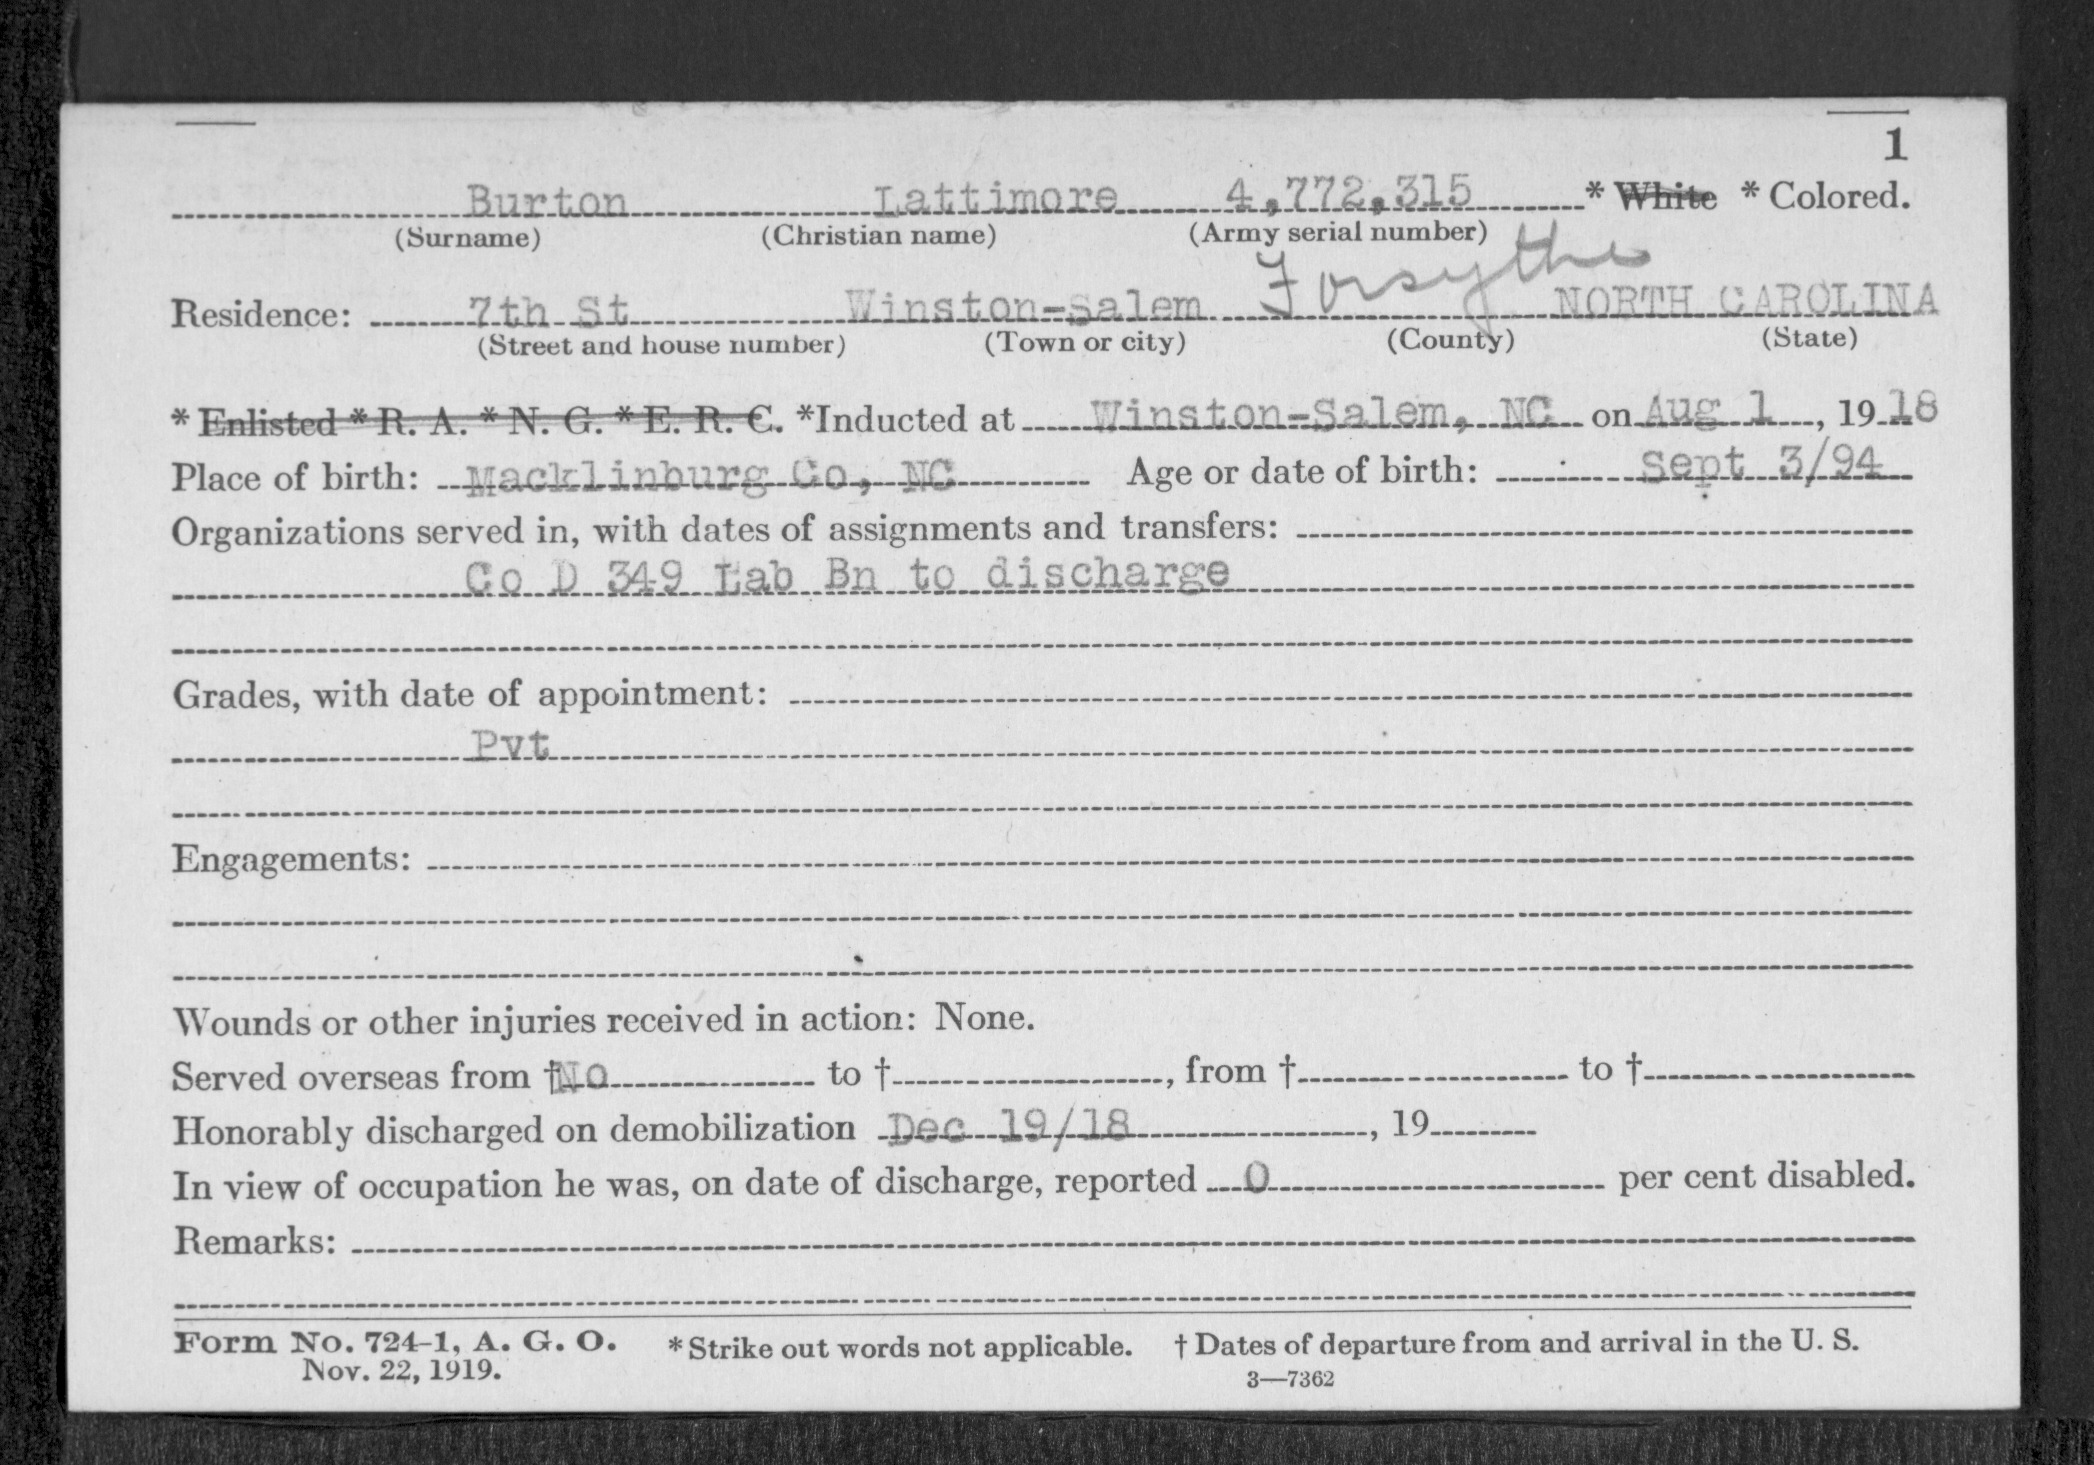 1
Burton Lattimore 4,772,315 * White * Colored.
(Surname) (Christian name) (Army serial number)
Residence: 7th St Winston-Salem Forsythe NORTH CAROLINA
(Street and house number) (Town or city) (County) (State)
* Enlisted * R. A. * N. G. * E. R. C. *Inducted at Winston-Salem, NC on Aug 1, 1918
Place of birth: Macklinburg Co, NC Age or date of birth: Sept 3/94
Organizations served in, with dates of assignments and transfers:
Co D 349 Lab Bn to discharge
Grades, with date of appointment:
Pvt
Engagements:
Wounds or other injuries received in action: None.
Served overseas from †No to †, from † to †
Honorably discharged on demobilization Dec 19/18, 19
In view of occupation he was, on date of discharge, reported 0 per cent disabled.
Remarks:
Form No. 724-1, A. G. O. * Strike out words not applicable. † Dates of departure from and arrival in the U. S.
Nov. 22, 1919. 3—7362